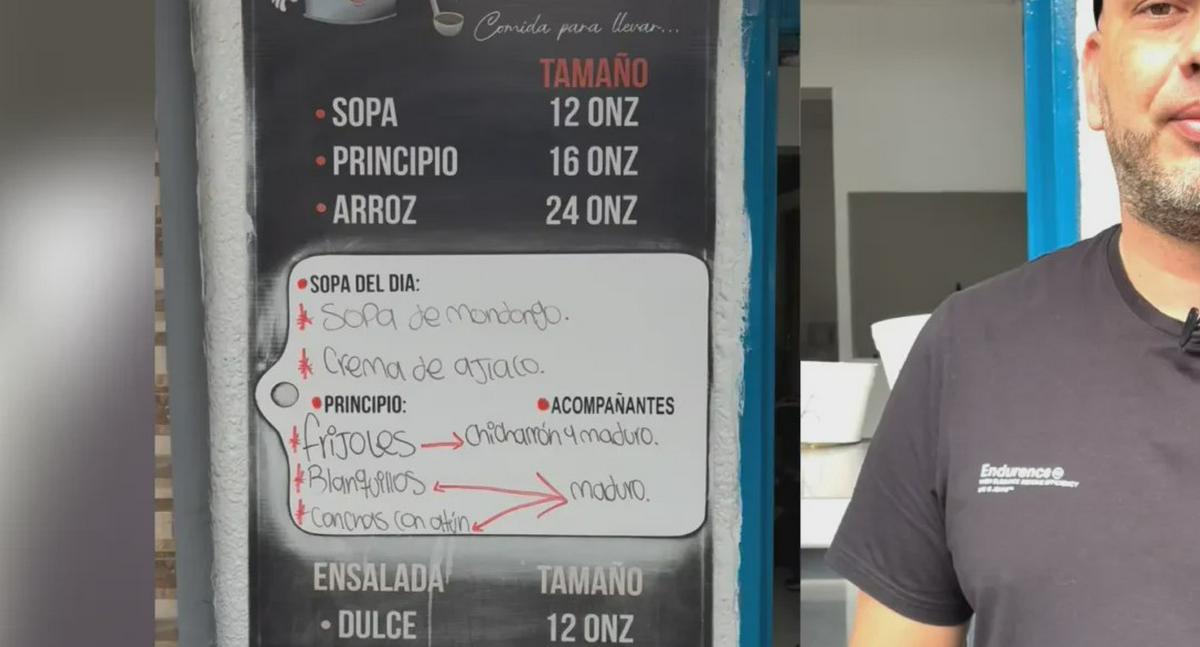 Comida para llevar...
TAMAÑO
• SOPA 12 ONZ
• PRINCIPIO 16 ONZ
• ARROZ 24 ONZ
• SOPA DEL DIA:
* Sopa de mondongo.
* Crema de ajiaco.
• PRINCIPIO: • ACOMPAÑANTES
* frijoles → chicharrón y maduro.
* Blanquillos maduro.
* Conchas con atún
ENSALADA TAMAÑO
• DULCE 12 ONZ
Endurence